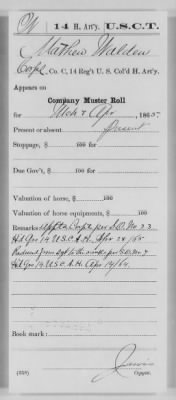 W 14 H. Art'y. U.S.C.T.
Mathew Walden
Corpl, Co. C, 14 Reg't U. S. Col'd H. Art'y.
Appears on
Company Muster Roll
for Mch & Apr, 1865.
Present or absent Present
Stoppage, $ 100 for
Due Gov't, $ 100 for
Valuation of horse, $ 100
Valuation of horse equipments, $ 100
Remarks: Appt'd Corpl per S.O. No 23
Hd Qrs 14 U.S.C.A.H. Apr 24/65
Reduced from Sgt to the ranks per S.O. No 7
Hd Qrs 14 U.S.C.A.H. Apr 14/64.
Book mark:
(358)
Copyist.